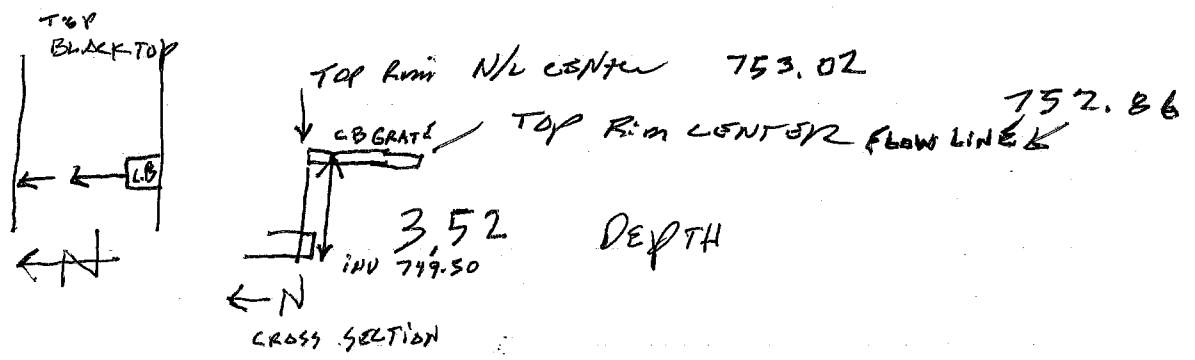 TOP
BLACKTOP
TOP Rim N/L CENTER 753.02
752.86
CB GRATE TOP Rim CENTER FLOW LINE
C.B
3.52 DEPTH
INV 749.50
N
N
CROSS SECTION